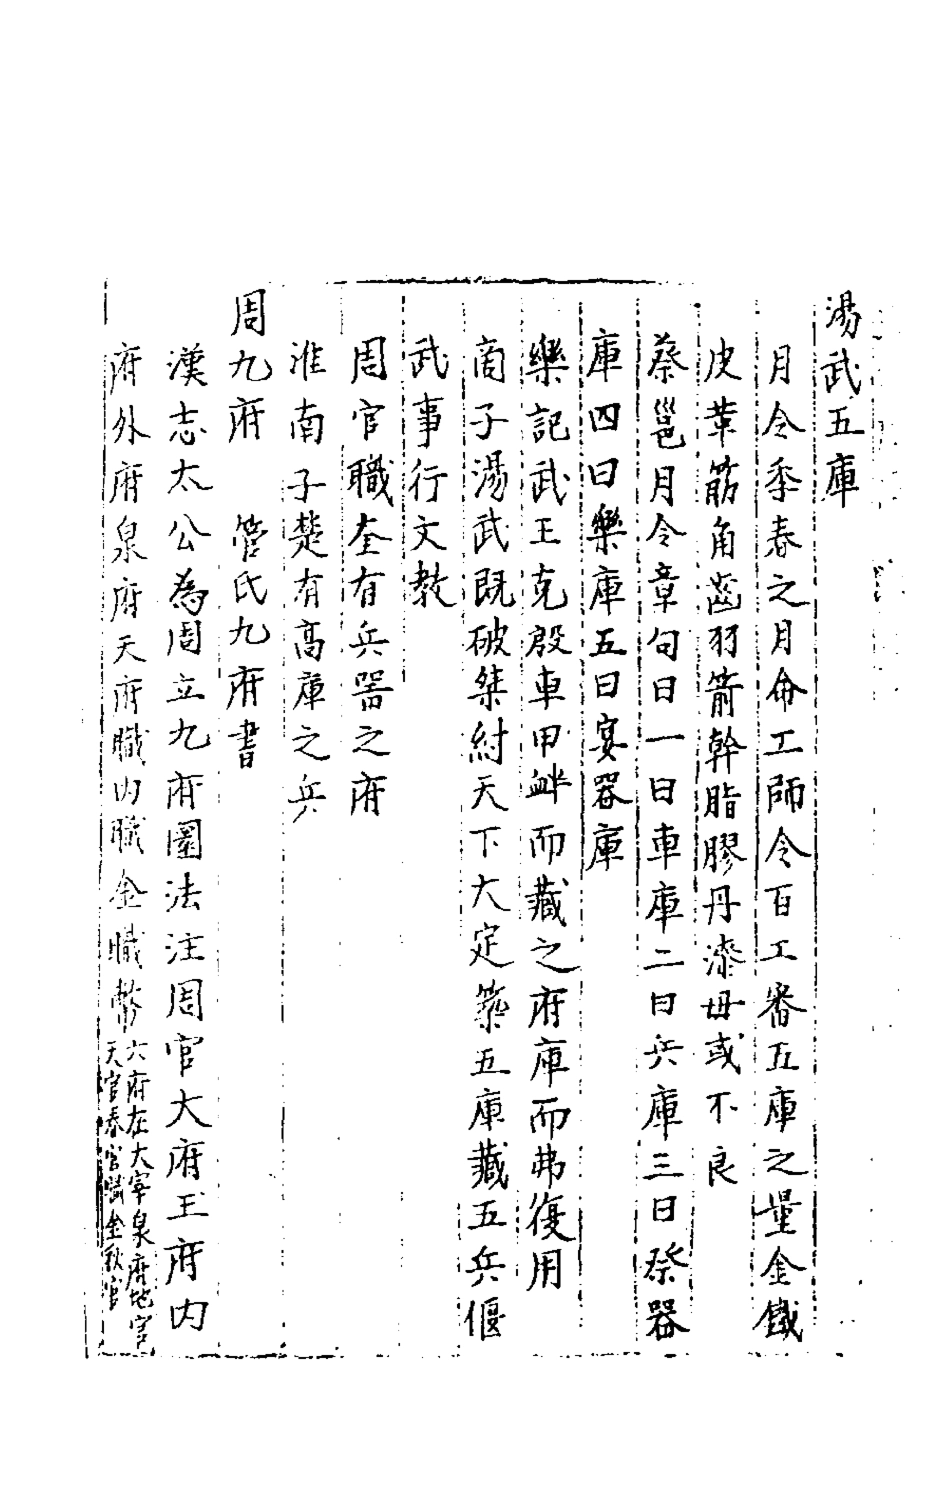 湯武五庫
月令季春之月命工師令百工審五庫之量金鐵
皮革筋角齒羽箭幹脂膠丹漆毋或不良
蔡邕月令章句曰一曰車庫二曰兵庫三曰祭器
庫四曰樂庫五曰宴器庫
樂記武王克殷車甲衅而藏之府庫而弗復用
商子湯武既破桀紂天下大定築五庫藏五兵偃
武事行文教
周官職奎有兵器之府
淮南子楚有高庫之兵
周九府 管氏九府書
漢志太公為周立九府圜法注周官大府王府内
府外府泉府天府職内職金職幣六府在大宰泉府地官
天官春官職金秋官